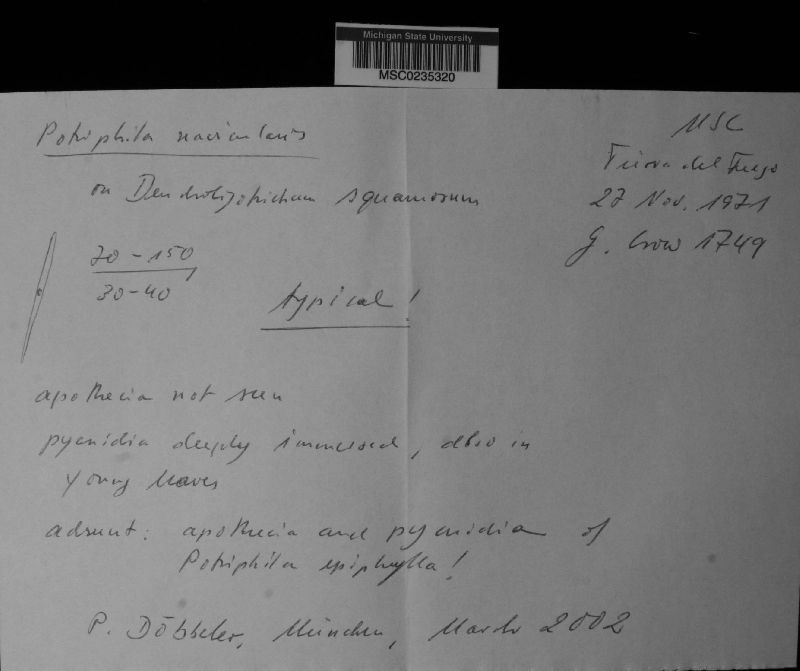 Michigan State University
MSC0235320
Potriphila navicularis
MSC
Tierra del Fuego
on Dendroligotrichum squamosum
27 Nov. 1971
G. Crow 1749
70-150
30-40
typical!
apothecia not seen
pycnidia deeply immersed, also in
young leaves
adsunt: apothecia and pycnidia of
Potriphila epiphylla!
P. Döbbeler, München, March 2002